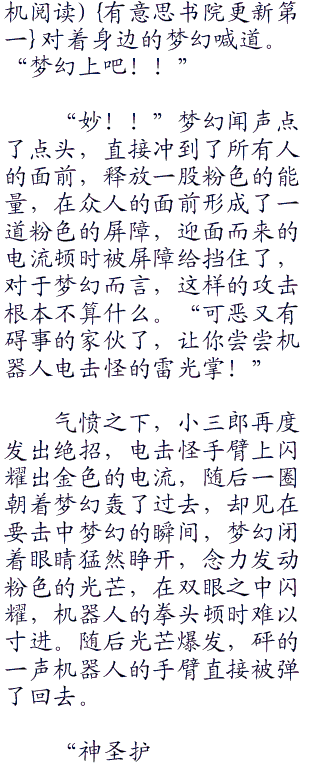 机阅读）{有意思书院更新第
一}对着身边的梦幻喊道。
“梦幻上吧！！”
“妙！！”梦幻闻声点
了点头，直接冲到了所有人
的面前，释放一股粉色的能
量，在众人的面前形成了一
道粉色的屏障，迎面而来的
电流顿时被屏障给挡住了，
对于梦幻而言，这样的攻击
根本不算什么。“可恶又有
碍事的家伙了，让你尝尝机
器人电击怪的雷光掌！”
气愤之下，小三郎再度
发出绝招，电击怪手臂上闪
耀出金色的电流，随后一圈
朝着梦幻轰了过去，却见在
要击中梦幻的瞬间，梦幻闭
着眼睛猛然睁开，念力发动
粉色的光芒，在双眼之中闪
耀，机器人的拳头顿时难以
寸进。随后光芒爆发，砰的
一声机器人的手臂直接被弹
了回去。
“神圣护